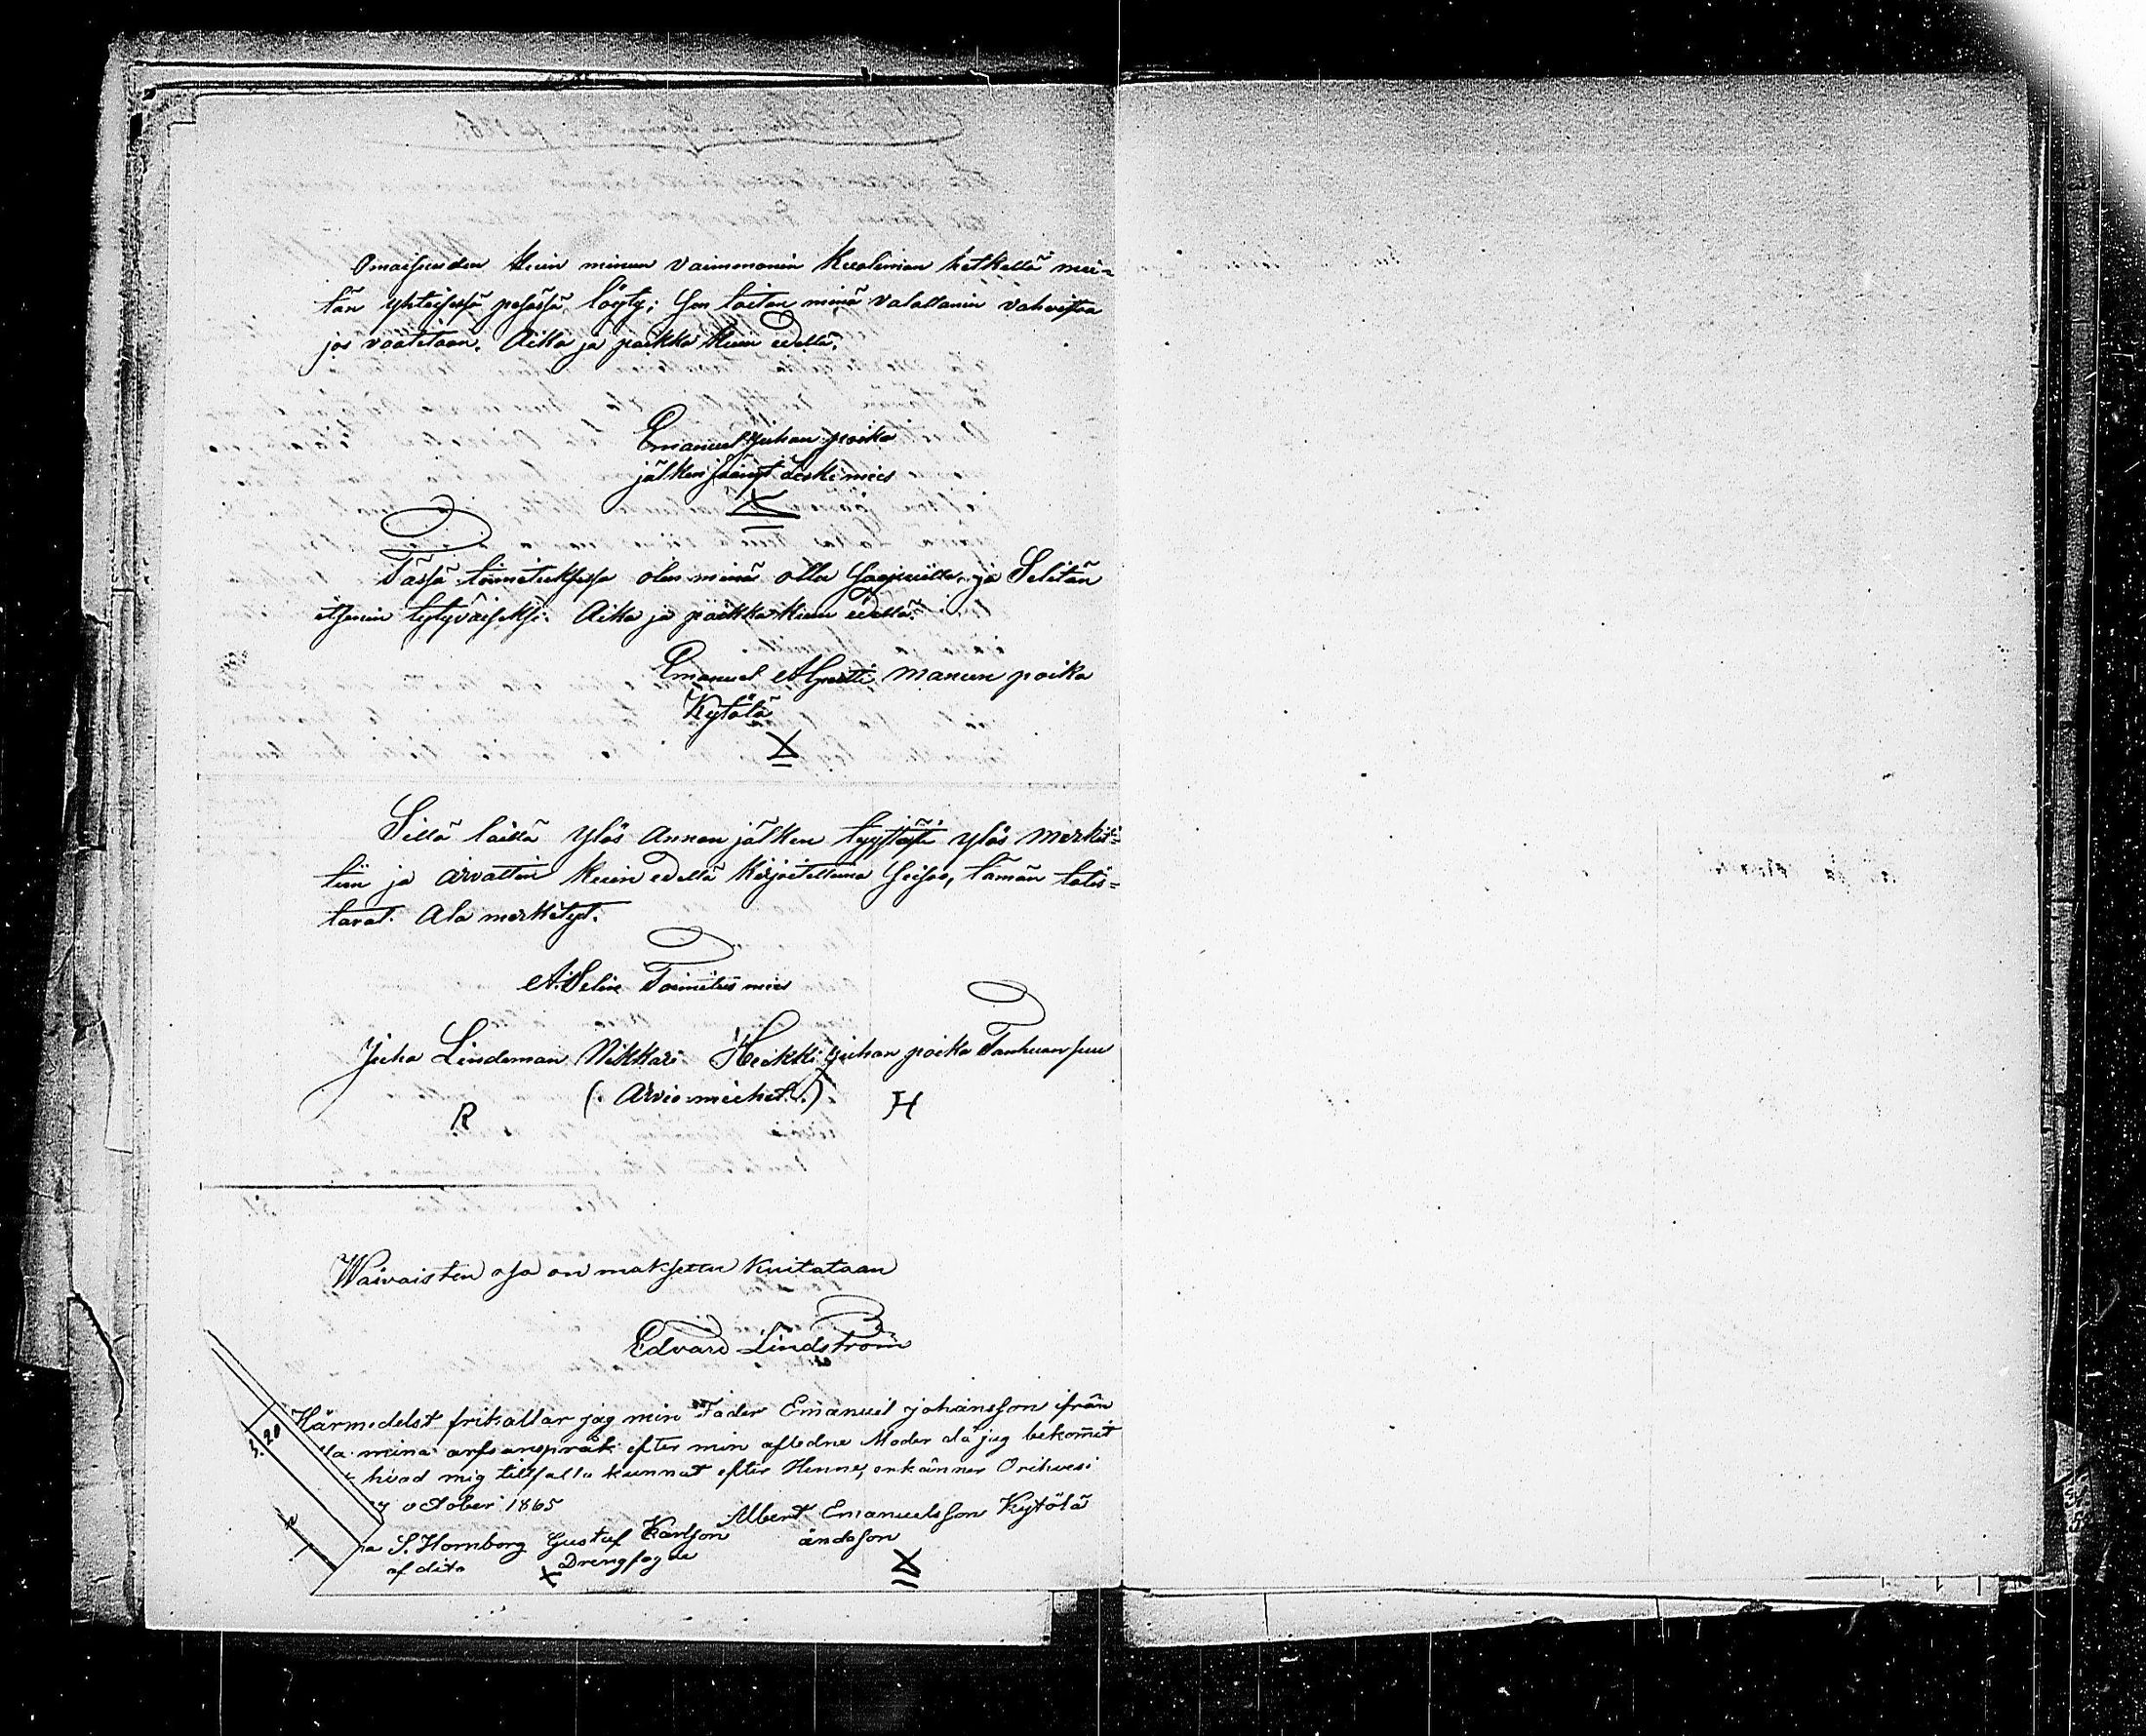 Omaisuuden kuin minun vaimonanin kuoleman hetkellä mei=
tän yhteisessä pesässä löyty; Sen taitan minä valallanin vahvistaa
jos vaatetaan. Aika ja paikka kuin edellä.
Emanuel Juhan poika
jälken jäänyt leski mies
X
Tässä toimetuksessa olen minä ollu Saapuilla, ja Selitän
itsenin tytyväiseksi. Aika ja paikka kuin edellä.
Emanuel Alpertti Manun poika
Kytölä
X
Sillä lailla ylös annon jälken ylös merkit=
tiin ja arvattin kuin edellä kirjoitettuna Seisoo, tämän totis=
tavat. Ala merkityt.
A. Selin Toimitus mies
Juha Lindeman Nikkari Heikki Juhan poika Tanhuanpuu
(: Arvio miehet :)
R H
Waivaisten osa on maksettu kuitataan
Edvard Lindström
Härmedelst frikallar jag min Fader Emanuel Johansson ifrån
lla mina arfsanspråk efter min afledne Moder då jag bekommit
hvad mig tillfalla kunnat efter Henne, erkänner Orihvesi
october 1865
Albert Emanuelsson Kytölä
S. Hornborg Gustaf Karlson åndason
af dito X Drengfogde X